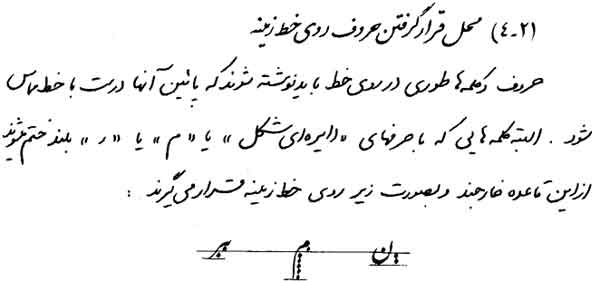 (۴-۲۱ محل قرار گرفتن حروف روی خط زمینه
حروف و کلمه‌ها طوری در روی خط باید نوشته شوند که پائین آنها درست با خط مماس
شود . البته کلمه‌هایی که با حرفهای «دایره‌ای شکل» یا «م» یا «ر» بلند ختم میشوند
از این قاعده خارجند و بصورت زیر روی خط زمینه قرار می‌گیرند :
ین م بر